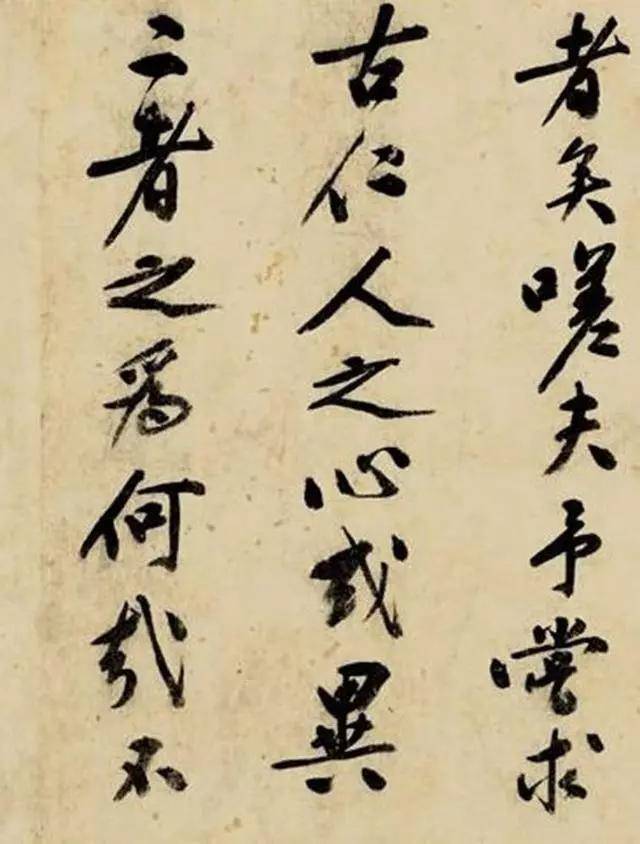 者矣嗟夫予嘗求
古仁人之心或異
二者之為何哉不